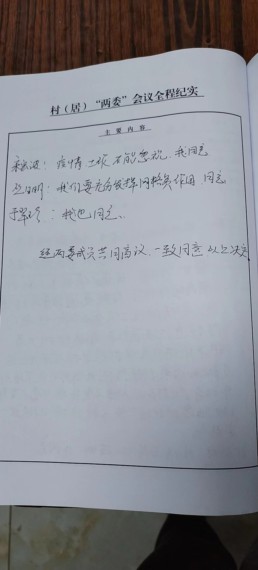 村（居）“两委”会议全程纪实
主要内容
：疫情工作不能忽视，我同意
：我们要充分发挥网格员作用 同意
：我也同意。
经两委成员共同商议，一致同意以上决定